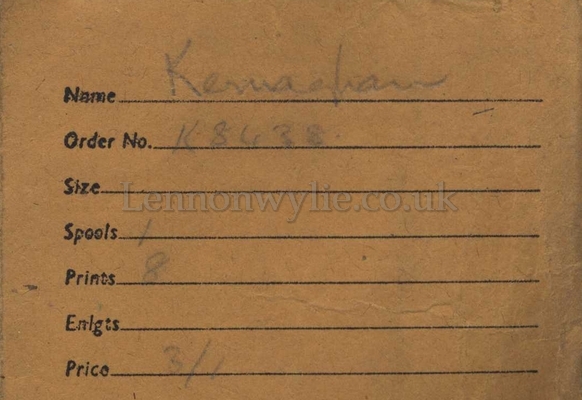 Name Kernaghan
Order No. K 8438
Size
Lennonwylie.co.uk
Spools 1
Prints 8
Enlgts
Price 3/1